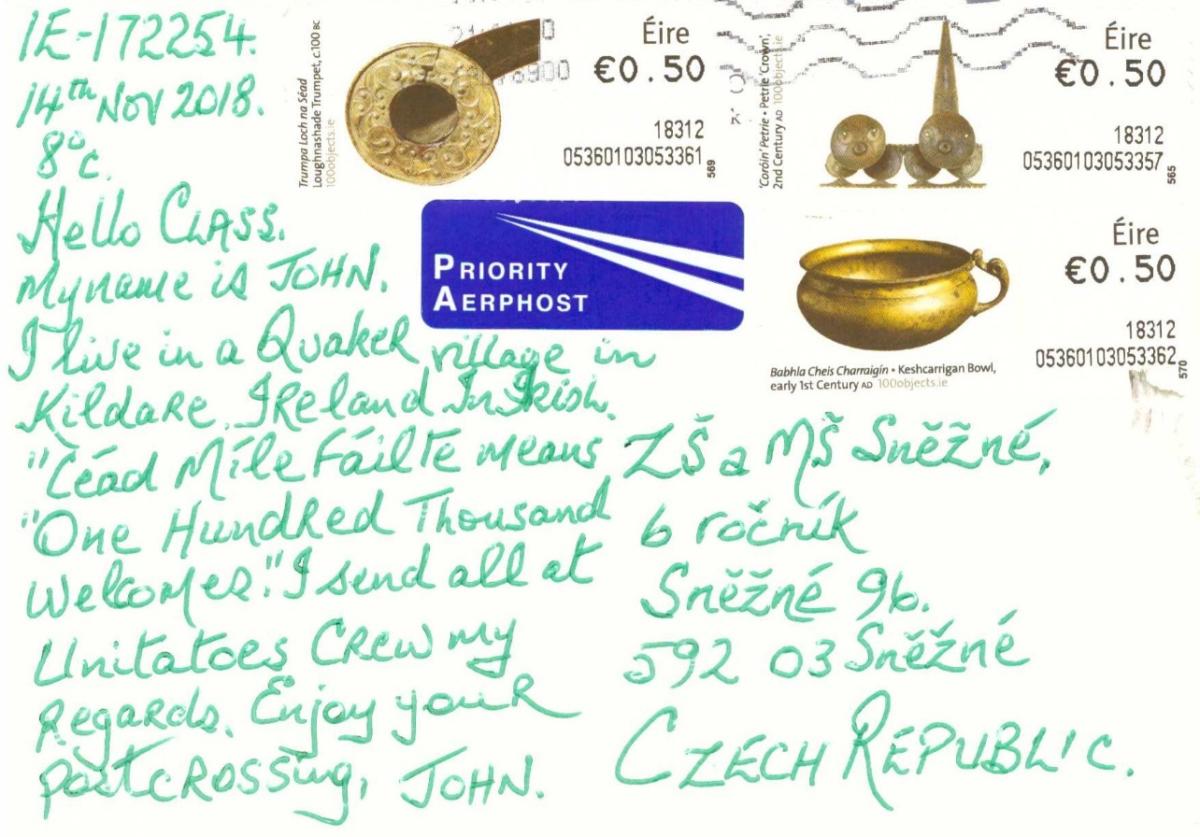 IE-172254.
14th Nov 2018.
8°c.
Hello CLASS.
My name is JOHN.
I live in a Quaker village in
Kildare, Ireland In Irish.
"Céad Míle Fáilte means
"One Hundred Thousand
Welcomes." I send all at
Unitatoes Crew my
Regards. Enjoy your
postcrossing, JOHN.
Trumpa Loch na Séad
Loughnashade Trumpet, c.100 BC
100objects.ie
Éire
€0.50
18312
05360103053361
569
'Coróin' Petrie • Petrie 'Crown',
2nd Century AD 100objects.ie
Éire
€0.50
18312
05360103053357
565
PRIORITY
AERPHOST
Éire
€0.50
18312
05360103053362
570
Babhla Cheis Charraigín • Keshcarrigan Bowl,
early 1st Century AD 100objects.ie
ZŠ a MŠ Sněžné,
6 ročník
Sněžné 96.
592 03 Sněžné
CZECH REPUBLIC.